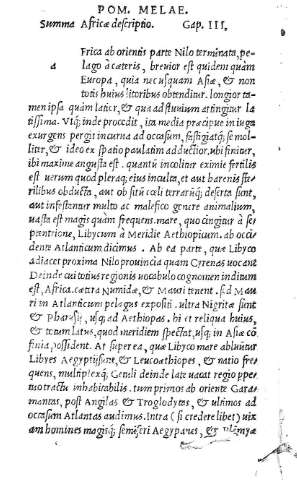 POM. MELAE.
Summa Africæ descriptio. Cap. III.
Frica ab orientis parte Nilo terminata, pe-
a lago à cæteris, breuior est quidem quàm
Europa, quia nec usquam Asiæ, & non
totis huius litoribus obtenditur. longior ta-
men ipsa quàm latior, & qua ad fluuium attingitur la-
tissima. Vtq; inde procedit, ita media præcipue in iuga
exurgens pergit incurua ad occasum, fastigiatq; se mol-
liter, & ideo ex spatio paulatim adductior, ubi finitur,
ibi maxime angusta est. quantū incolitur eximie fertilis
est uerum quod pleraq; eius inculta, et aut harenis ste-
rilibus obducta, aut ob sitū cœli terrarūq; deserta sunt,
aut infestantur multo ac malefico genere animalium,
uasta est magis quàm frequens. mare, quo cingitur à se-
ptentrione, Libycum à Meridie Aethiopicum. ab occi-
dente Atlanticum dicimus. Ab ea parte, quæ Libyco
adiacet proxima Nilo prouincia quam Cyrenas uocant
Deinde cui totius regionis uocabulo cognomen inditum
est, Africa. cætera Numidæ, & Mauri tenent. sed Mau
ri in Atlanticum pelagus expositi. ultra Nigritæ sunt
& Pharusij, usq; ad Aethiopas. hi et reliqua huius,
& totum latus, quod meridiem spectat, usq; in Asiæ cō
finia, possident. At super ea, quæ Libyco mare abluitur
Libyes Aegyptij sunt, & Leucoæthiopes, & natio fre
quens, multiplexq; Getuli deinde late uacat regio ppe-
tuo tractu inhabitabilis. tum primos ab oriente Gara
mantas, post Augilas & Troglodytas, & ultimos ad
occasum Atlantas audimus. Intra (si credere libet) uix
iam homines magisq; semiferi Aegypanes, &